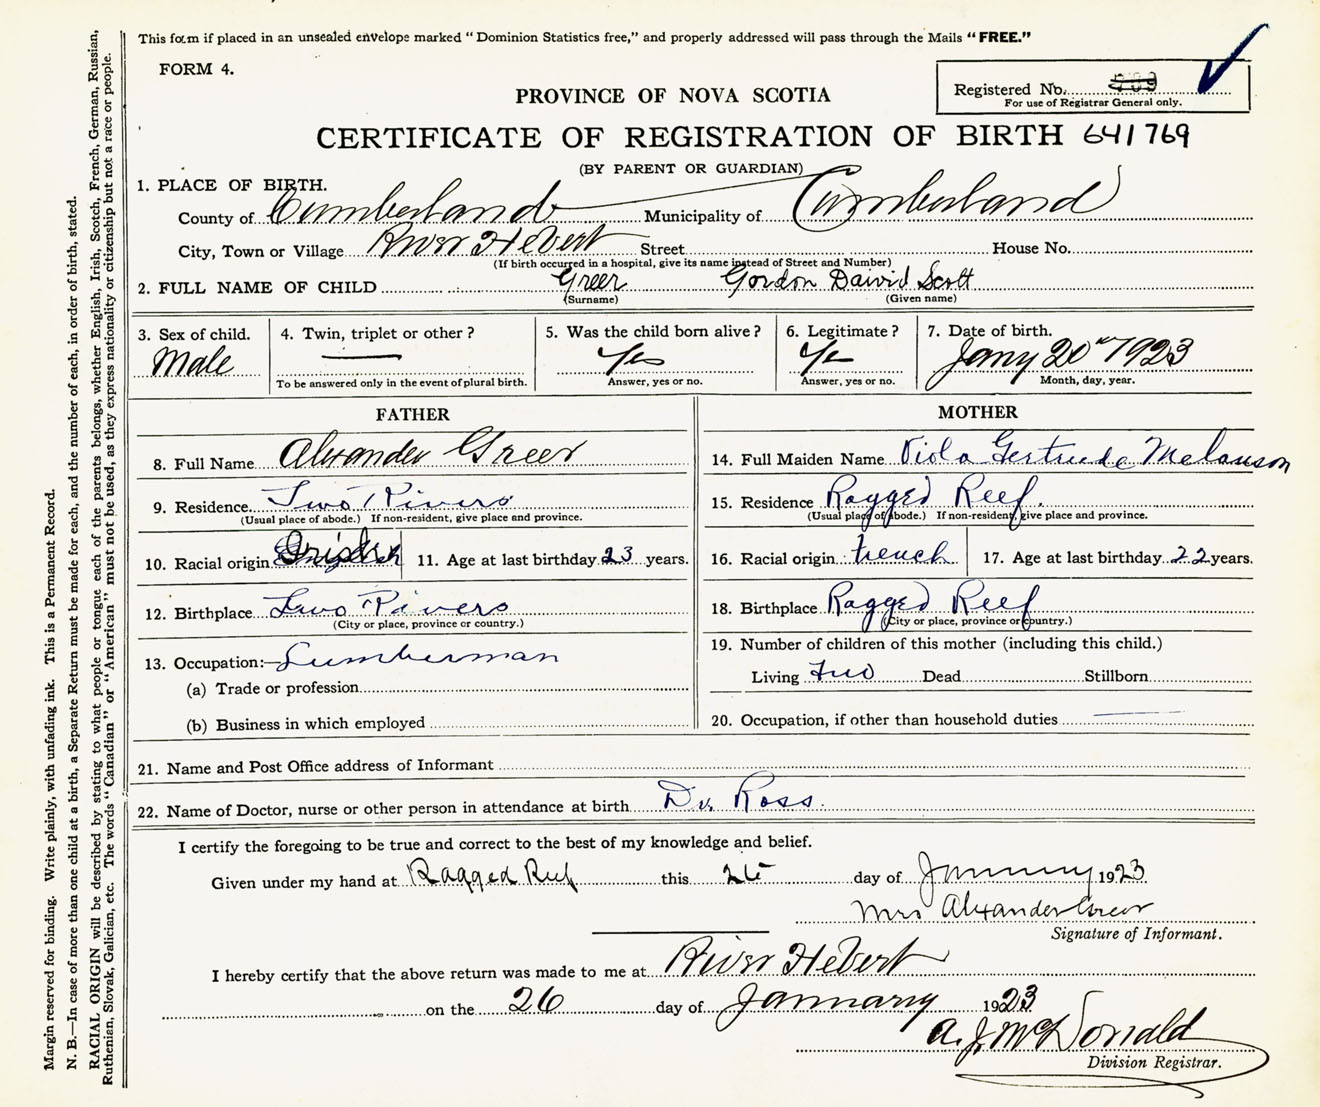 This form if placed in an unsealed envelope marked "Dominion Statistics free," and properly addressed will pass through the Mails "FREE."
FORM 4.
Registered No.
For use of Registrar General only.
PROVINCE OF NOVA SCOTIA
CERTIFICATE OF REGISTRATION OF BIRTH 641769
(BY PARENT OR GUARDIAN)
1. PLACE OF BIRTH.
County of Cumberland Municipality of Cumberland
City, Town or Village River Hebert Street House No.
(If birth occurred in a hospital, give its name instead of Street and Number)
2. FULL NAME OF CHILD Greer Gordon Daivid Scott
(Surname) (Given name)
3. Sex of child. 4. Twin, triplet or other? 5. Was the child born alive? 6. Legitimate? 7. Date of birth.
Male Yes Yes Jany 20th 1923
To be answered only in the event of plural birth. Answer, yes or no. Answer, yes or no. Month, day, year.
FATHER
8. Full Name Alexander Greer
9. Residence. Two Rivers
(Usual place of abode.) If non-resident, give place and province.
10. Racial origin Irish 11. Age at last birthday 23 years.
12. Birthplace Two Rivers
(City or place, province or country.)
13. Occupation:— Lumberman
(a) Trade or profession
(b) Business in which employed
MOTHER
14. Full Maiden Name Viola Gertrude Melanson
15. Residence Ragged Reef.
(Usual place of abode.) If non-resident, give place and province.
16. Racial origin french 17. Age at last birthday 22 years.
18. Birthplace Ragged Reef
(City or place, province or country.)
19. Number of children of this mother (including this child.)
Living two Dead Stillborn
20. Occupation, if other than household duties
21. Name and Post Office address of Informant
22. Name of Doctor, nurse or other person in attendance at birth Dr. Ross.
I certify the foregoing to be true and correct to the best of my knowledge and belief.
Given under my hand at Ragged Reef this day of January 1923
Mrs Alexander Greer
Signature of Informant.
I hereby certify that the above return was made to me at River Hebert
on the 26 day of January 1923
A. J. McDonald
Division Registrar.
Margin reserved for binding. Write plainly, with unfading ink. This is a Permanent Record.
N. B.—In case of more than one child at a birth, a Separate Return must be made for each, and the number of each, in order of birth, stated.
RACIAL ORIGIN will be described by stating to what people or tongue each of the parents belongs, whether English, Irish, Scotch, French, German, Russian,
Ruthenian, Slovak, Galician, etc. The words "Canadian" or "American" must not be used, as they express nationality or citizenship but not a race or people.